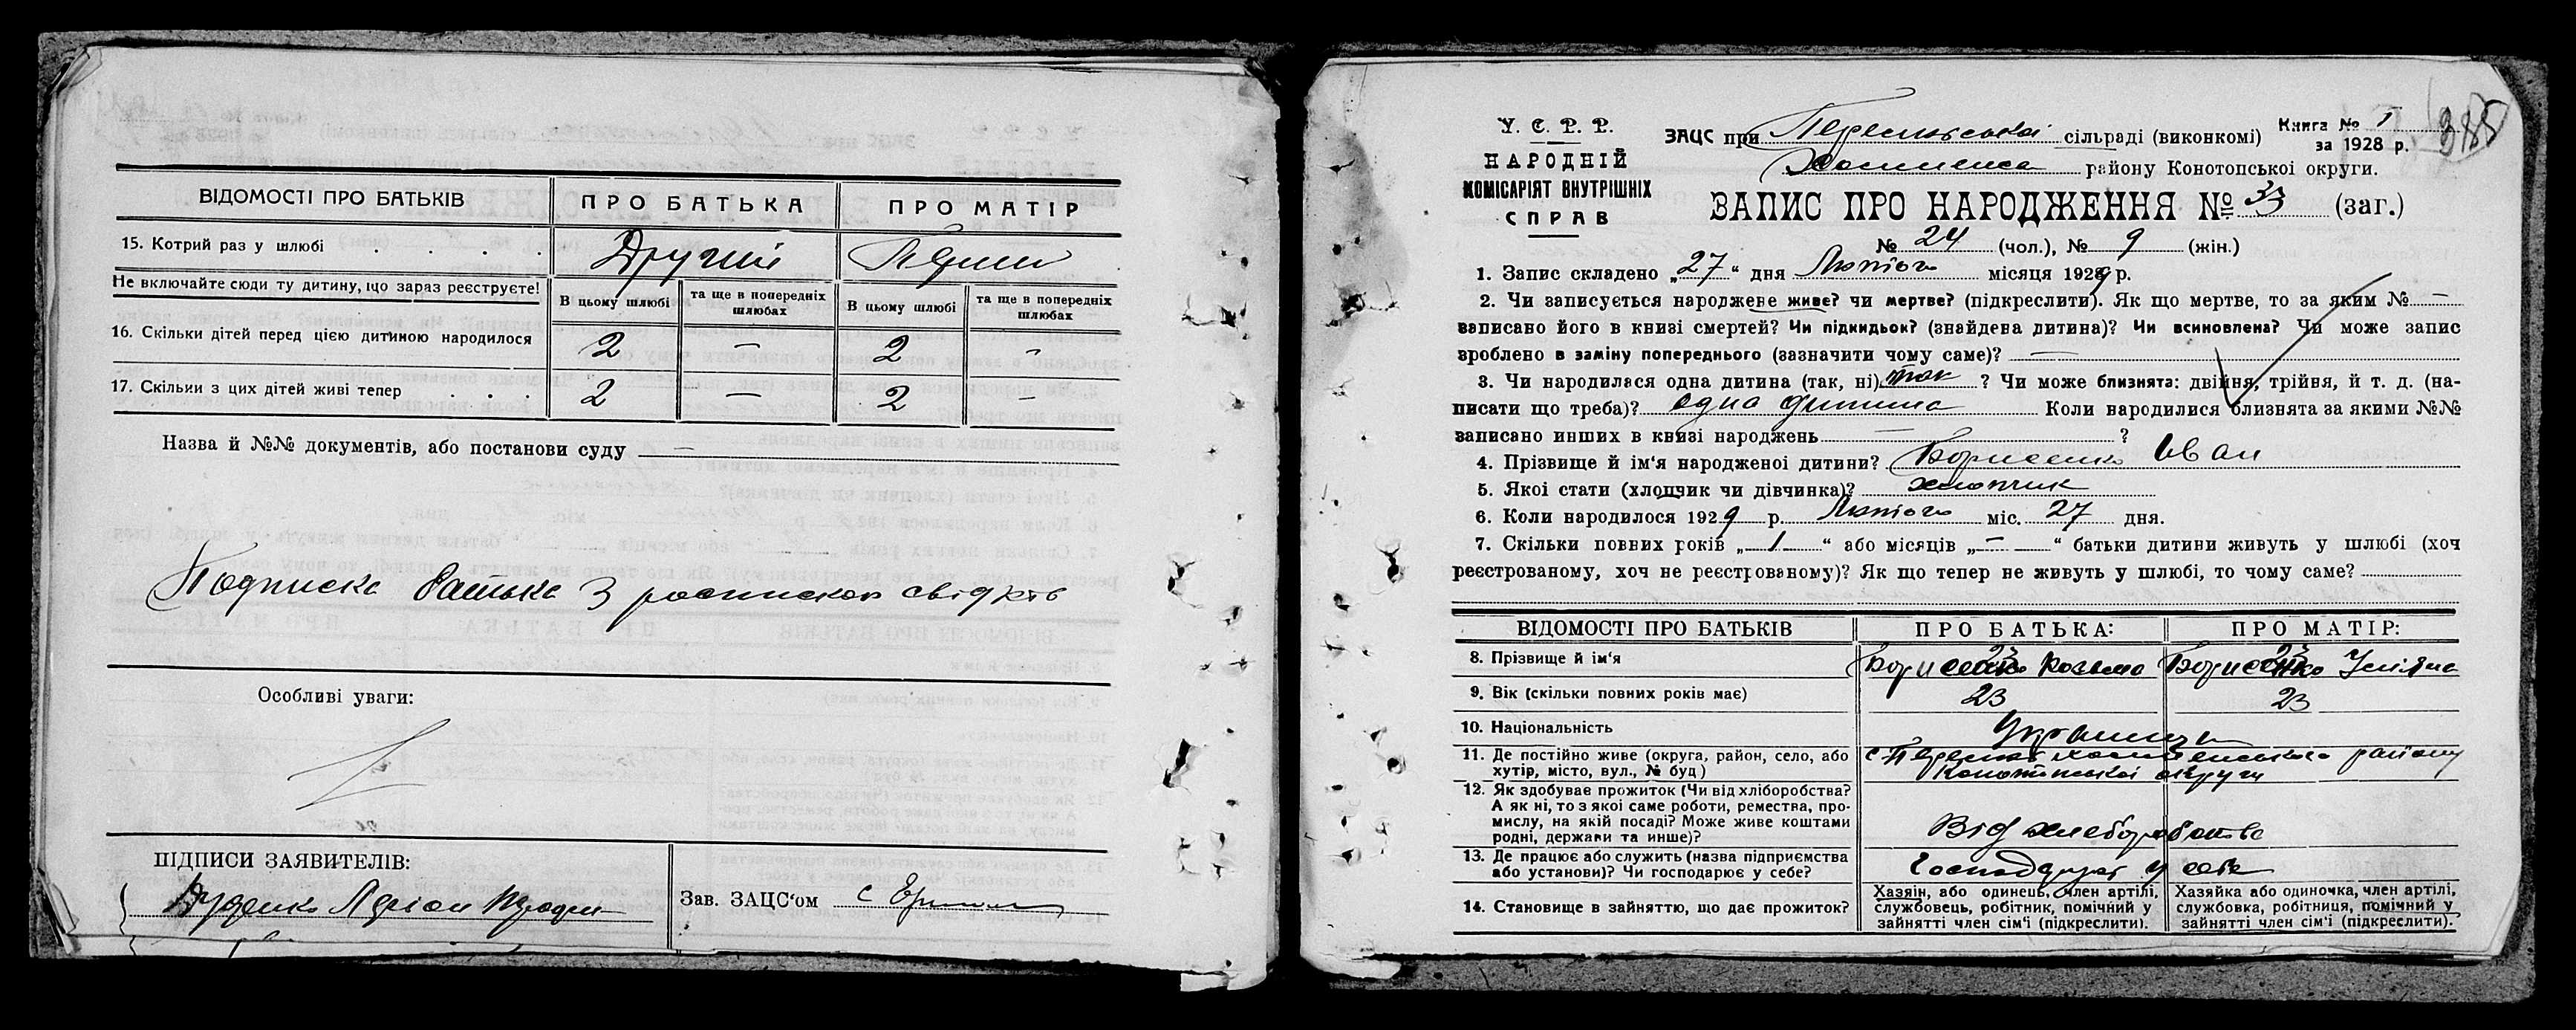 ВІДОМОСТІ ПРО БАТЬКІВ ПРО БАТЬКА ПРО МАТІР
15. Котрий раз у шлюбі . . . . Другий
Не включайте сюди ту дитину, що зараз реєструєте! В цьому шлюбі та ще в попередніх шлюбах В цьому шлюбі та ще в попередніх шлюбах
16. Скільки дітей перед цією дитиною народилося 2 — 2 -
17. Скільки з цих дітей живі тепер . . . 2 — 2 —
Назва й №№ документів, або постанови суду —
Подписка батька з роспискою
Особливі уваги:
ПІДПИСИ ЗАЯВИТЕЛІВ:
Зав. ЗАЦС'ом
У. С. Р. Р.
НАРОДНІЙ
КОМІСАРІЯТ ВНУТРІШНІХ
СПРАВ
ЗАЦС при сільраді (виконкомі)
Книга № 1
за 1928 р.
385
району Конотопської округи.
ЗАПИС ПРО НАРОДЖЕННЯ № 33 (заг.)
№ 24 (чол.), № 9 (жін.)
1. Запис складено „27“ дня Лютого місяця 1929 р.
2. Чи записується народжене живе? чи мертве? (підкреслити). Як що мертве, то за яким № —
записано його в книзі смертей? Чи підкидьок? (знайдена дитина)? Чи всиновлена? Чи може запис
зроблено в заміну попереднього (зазначити чому саме)? —
3. Чи народилася одна дитина (так, ні) так ? Чи може близнята: двійня, трійня, й т. д. (на-
писати що треба)? одна дитина Коли народилися близнята за якими №№
записано инших в книзі народжень — ?
4. Прізвище й ім'я народженої дитини? Борисенко Іван
5. Якої стати (хлопчик чи дівчинка)? хлопчик
6. Коли народилося 1929 р. Лютого міс. 27 дня.
7. Скільки повних років „1“ або місяців „—“ батьки дитини живуть у шлюбі (хоч
реєстрованому, хоч не реєстрованому)? Як що тепер не живуть у шлюбі, то чому саме?
ВІДОМОСТІ ПРО БАТЬКІВ ПРО БАТЬКА: ПРО МАТІР:
8. Прізвище й ім'я Борисенко Козьма Борисенко Уліяна
9. Вік (скільки повних років має) 23 23
10. Національність Українці
11. Де постійно живе (округа, район, село, або
хутір, місто, вул., № буд) району
Конотопської округи
12. Як здобуває прожиток (Чи від хліборобства?
А як ні, то з якої саме роботи, ремества, про-
мислу, на якій посаді? Може живе коштами
родні, держави та инше)? Від хлеборобства
13. Де працює або служить (назва підприємства
або установи)? Чи господарює у себе? Господарює у себе
14. Становище в зайняттю, що дає прожиток?
Хазяін, або одинець, член артілі,
службовець, робітник, помічний у
зайнятті член сім'ї (підкреслити).
Хазяйка або одиночка, член артілі,
службовка, робітниця, помічний у
зайнятті член сім'ї (підкреслити).